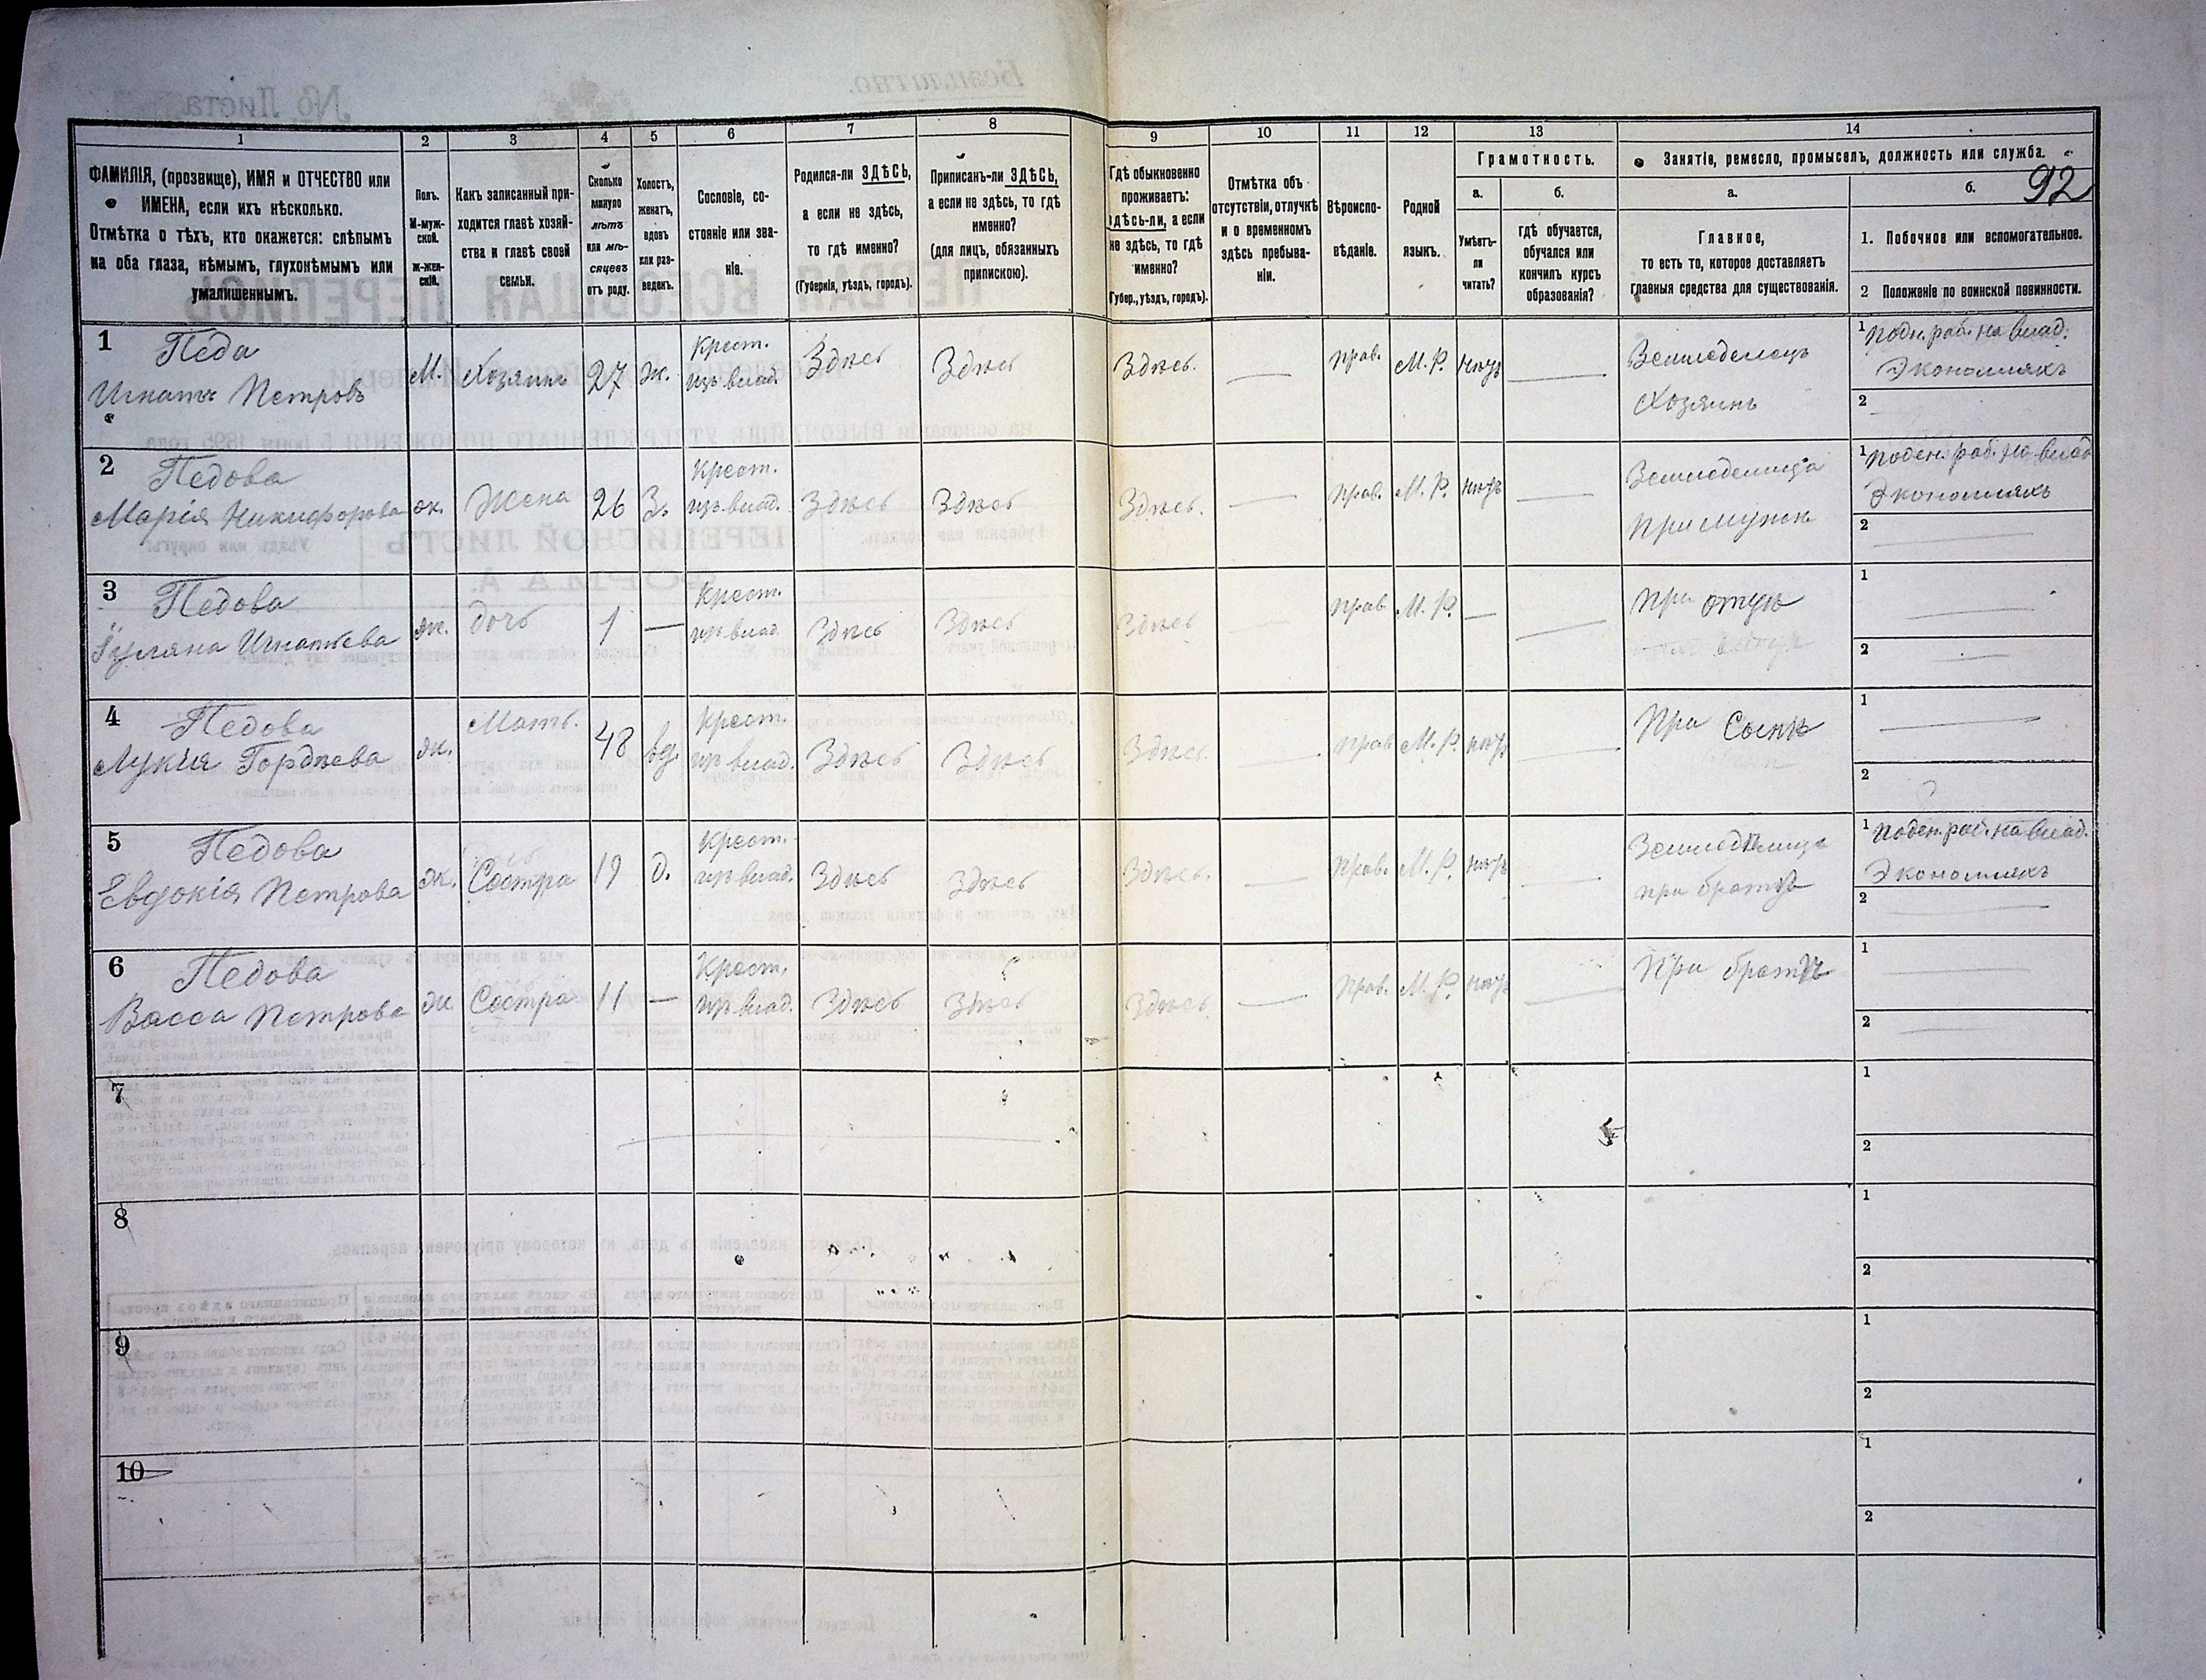 1 2 3 4 5 6 7 8 9 10 11 12 13 14
ФАМИЛІЯ, (прозвище), ИМЯ и ОТЧЕСТВО или
ИМЕНА, если ихъ нѣсколько.
Отмѣтка о тѣхъ, кто окажется: слѣпымъ
на оба глаза, нѣмымъ, глухонѣмымъ или
умалишеннымъ.
Полъ.
М-муж-
ской.
Ж-жен-
скій.
Какъ записанный при-
ходится главѣ хозяй-
ства и главѣ своей
семьи.
Сколько
минуло
лѣтъ
или мѣ-
сяцевъ
отъ роду.
Холостъ,
женатъ,
вдовъ
или раз-
веденъ.
Сословіе, со-
стояніе или зва-
ніе.
Родился-ли ЗДѢСЬ,
а если не здѣсь,
то гдѣ именно?
(Губернія, уѣздъ, городъ).
Приписанъ-ли ЗДѢСЬ,
а если не здѣсь, то гдѣ
именно?
(для лицъ, обязанныхъ
припискою).
Гдѣ обыкновенно
проживаетъ:
здѣсь-ли, а если
не здѣсь, то гдѣ
именно?
(Губер., уѣздъ, городъ).
Отмѣтка объ
отсутствіи, отлучкѣ
и о временномъ
здѣсь пребыва-
ніи.
Вѣроиспо-
вѣданіе.
Родной
языкъ.
Грамотность.
а.
Умѣетъ-
ли
читать?
б.
гдѣ обучается,
обучался или
кончилъ курсъ
образованія?
Занятіе, ремесло, промыселъ, должность или служба.
92
а.
Главное,
то есть то, которое доставляетъ
главныя средства для существованія.
б.
1. Побочное или вспомогательное.
2 Положеніе по воинской повинности.
1 Педа
Игнатъ Петровъ
М. Хозяинъ 27 ж.
Крест.
изъ влад.
Здѣсь Здѣсь Здѣсь. — прав. М. Р. нѣтъ —
Земледелецъ
Хозяинъ
1 Поден. раб. на влад.
Экономіяхъ
2
2 Педова
Марія Никифорова
ж. Жена 26 З.
Крест.
изъ влад.
Здѣсь Здѣсь Здѣсь. — прав. М. Р. нѣтъ —
Земледелица
при мужѣ
1 Поден. раб. на влад
Экономіяхъ
2 —
3 Педова
Игнатьева
ж. дочь 1 —
Крест.
изъ влад.
Здѣсь Здѣсь Здѣсь — прав М. Р. — —
При отцѣ
1 —
2 —
4 Педова
Лукія Гордѣева
ж. Мать. 48 вд.
Крест.
изъ влад.
Здѣсь Здѣсь Здѣсь. — прав М. Р. нѣтъ —
При Сынѣ
1 —
2
5 Педова
Евдокія Петрова
ж. Сестра 19 д.
Крест.
изъ влад.
Здѣсь Здѣсь Здѣсь. — прав. М. Р. нѣтъ —
Земледѣлица
при братѣ
1 Поден. раб. на влад.
Экономіяхъ
2 —
6 Педова
Васса Петрова
ж Сестра 11 —
Крест.
изъ влад.
Здѣсь Здѣсь Здѣсь. — прав. М. Р. нѣтъ —
При братѣ
1 —
2 —
7
1
2
8
1
2
9
1
2
10
1
2